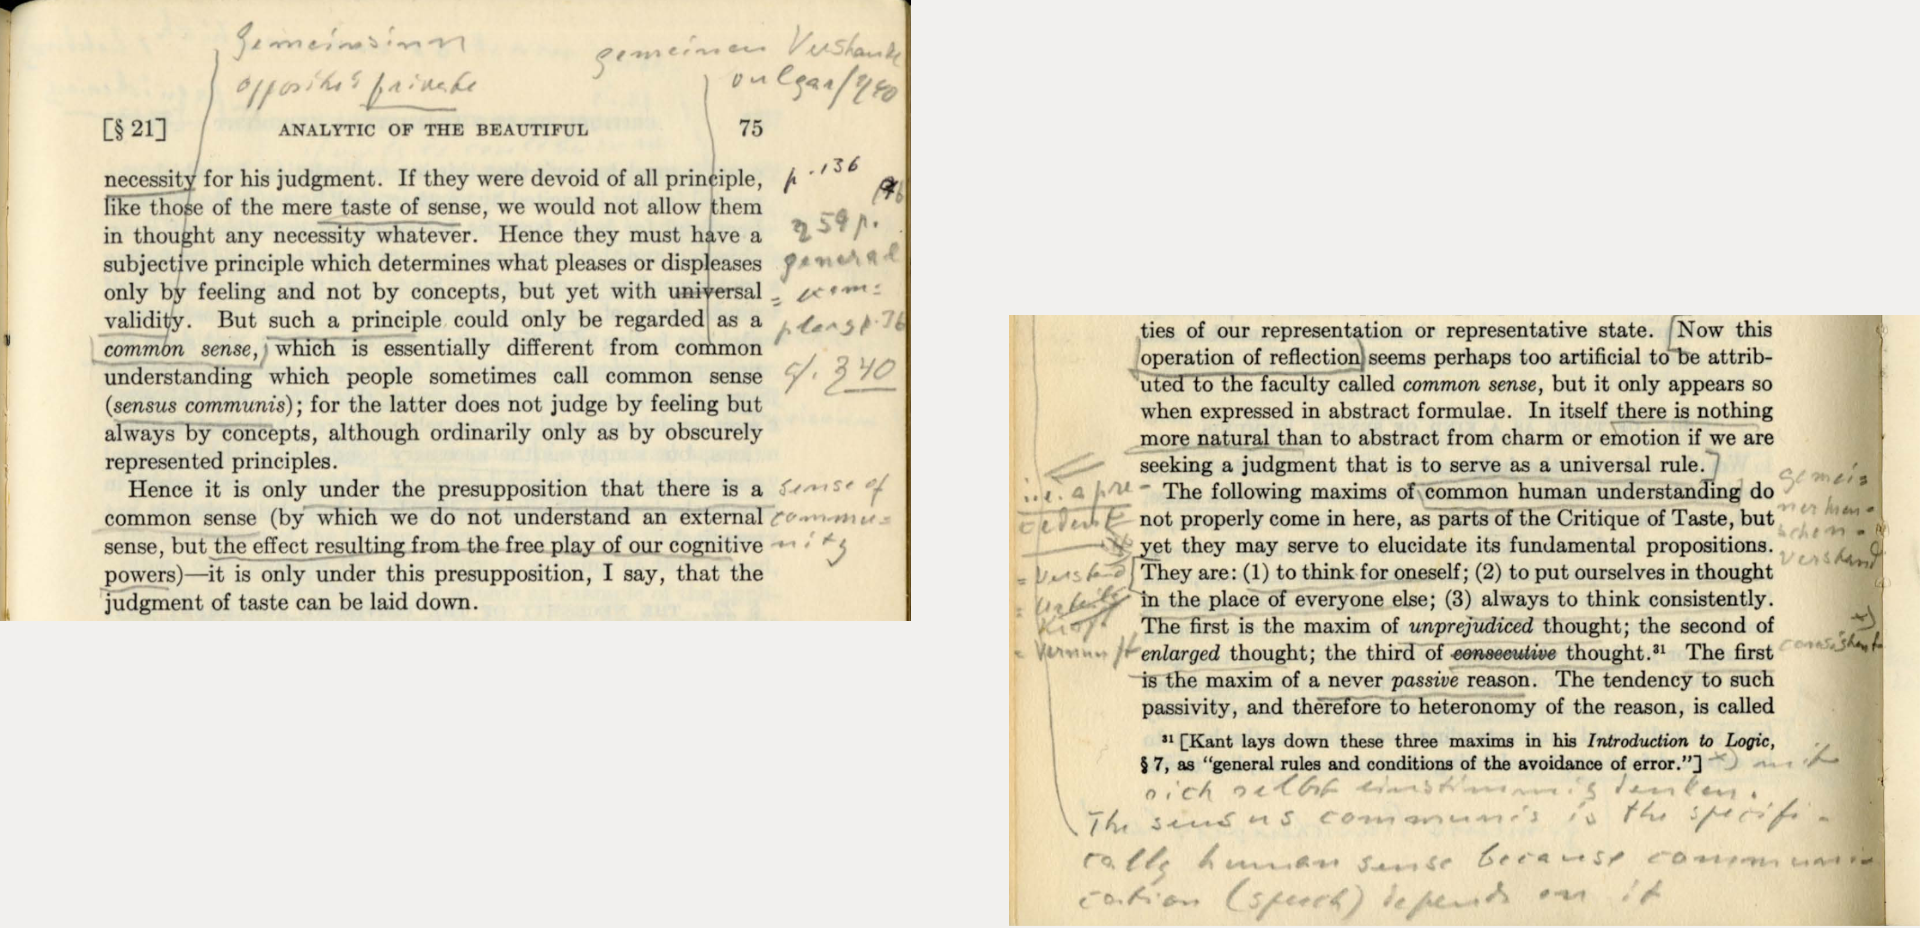 Gemeinsinn
opposite: private
gemeinen Verstande
vulgar/§40
[§ 21] ANALYTIC OF THE BEAUTIFUL 75
necessity for his judgment. If they were devoid of all principle,
like those of the mere taste of sense, we would not allow them
in thought any necessity whatever. Hence they must have a
subjective principle which determines what pleases or displeases
only by feeling and not by concepts, but yet with universal
validity. But such a principle could only be regarded as a
common sense, which is essentially different from common
understanding which people sometimes call common sense
(sensus communis); for the latter does not judge by feeling but
always by concepts, although ordinarily only as by obscurely
represented principles.
Hence it is only under the presupposition that there is a
common sense (by which we do not understand an external
sense, but the effect resulting from the free play of our cognitive
powers)—it is only under this presupposition, I say, that the
judgment of taste can be laid down.
p. 136
§ 59 p.
general
cf. § 40
sense of
commu=
nity
ties of our representation or representative state. Now this
operation of reflection seems perhaps too artificial to be attrib-
uted to the faculty called common sense, but it only appears so
when expressed in abstract formulae. In itself there is nothing
more natural than to abstract from charm or emotion if we are
seeking a judgment that is to serve as a universal rule.
The following maxims of common human understanding do
not properly come in here, as parts of the Critique of Taste, but
yet they may serve to elucidate its fundamental propositions.
They are: (1) to think for oneself; (2) to put ourselves in thought
in the place of everyone else; (3) always to think consistently.
The first is the maxim of unprejudiced thought; the second of
enlarged thought; the third of consecutive thought.³¹ The first
is the maxim of a never passive reason. The tendency to such
passivity, and therefore to heteronomy of the reason, is called
³¹ [Kant lays down these three maxims in his Introduction to Logic,
§ 7, as "general rules and conditions of the avoidance of error."] x) mit
sich selbst einstimmig denken.
The sensus communis is the specifi-
cally human sense because communi-
cation (speech) depends on it
= Verstand
= Urteils
Kraft
= Vernunft
gemei=
ner men=
schen=
verstand
x)
consistent